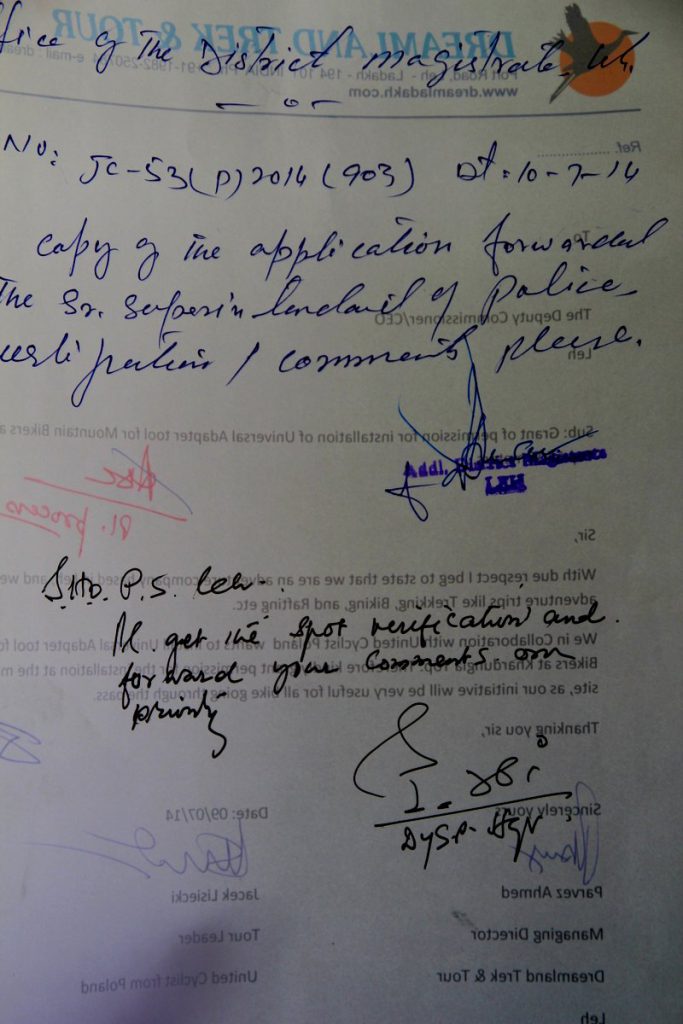 DREAMLAND TREK & TOUR
ffice of the District magistrate, Leh.
Fort Road, Leh - Ladakh - 194 101
www.dreamladakh.com
— o —
Ref.
No: JC-53(P)2014(903) Dt: 10-7-14
To
copy of the application forwarded
the Sr. Superintendent of Police
The Deputy Commissioner/CEO
Leh
comments please.
Sub: Grant of permission for installation of Universal Adapter tool for Mountain Bikers a
Addl. District Magistrate
LEH
Pl. process
Sir,
With due respect I beg to state that we are an adventure company based and we
S.H.O. P.S. Leh.
adventure trips like Trekking, Biking, and Rafting etc.
Pl get the spot verification and
We in Collaboration with United Cyclist Poland wants to Universal Adapter tool fo
forward your comments on
Bikers at Khardungla Top. Therefore permission for the installation at the m
priority
site, as our initiative will be very useful for all bike going through the pass.
Thanking you sir,
Sincerely yours
Date: 09/07/14
DySP. Hqr
Parvez Ahmed
Jacek Lisiecki
Managing Director
Tour Leader
Dreamland Trek & Tour
United Cyclist from Poland
Leh